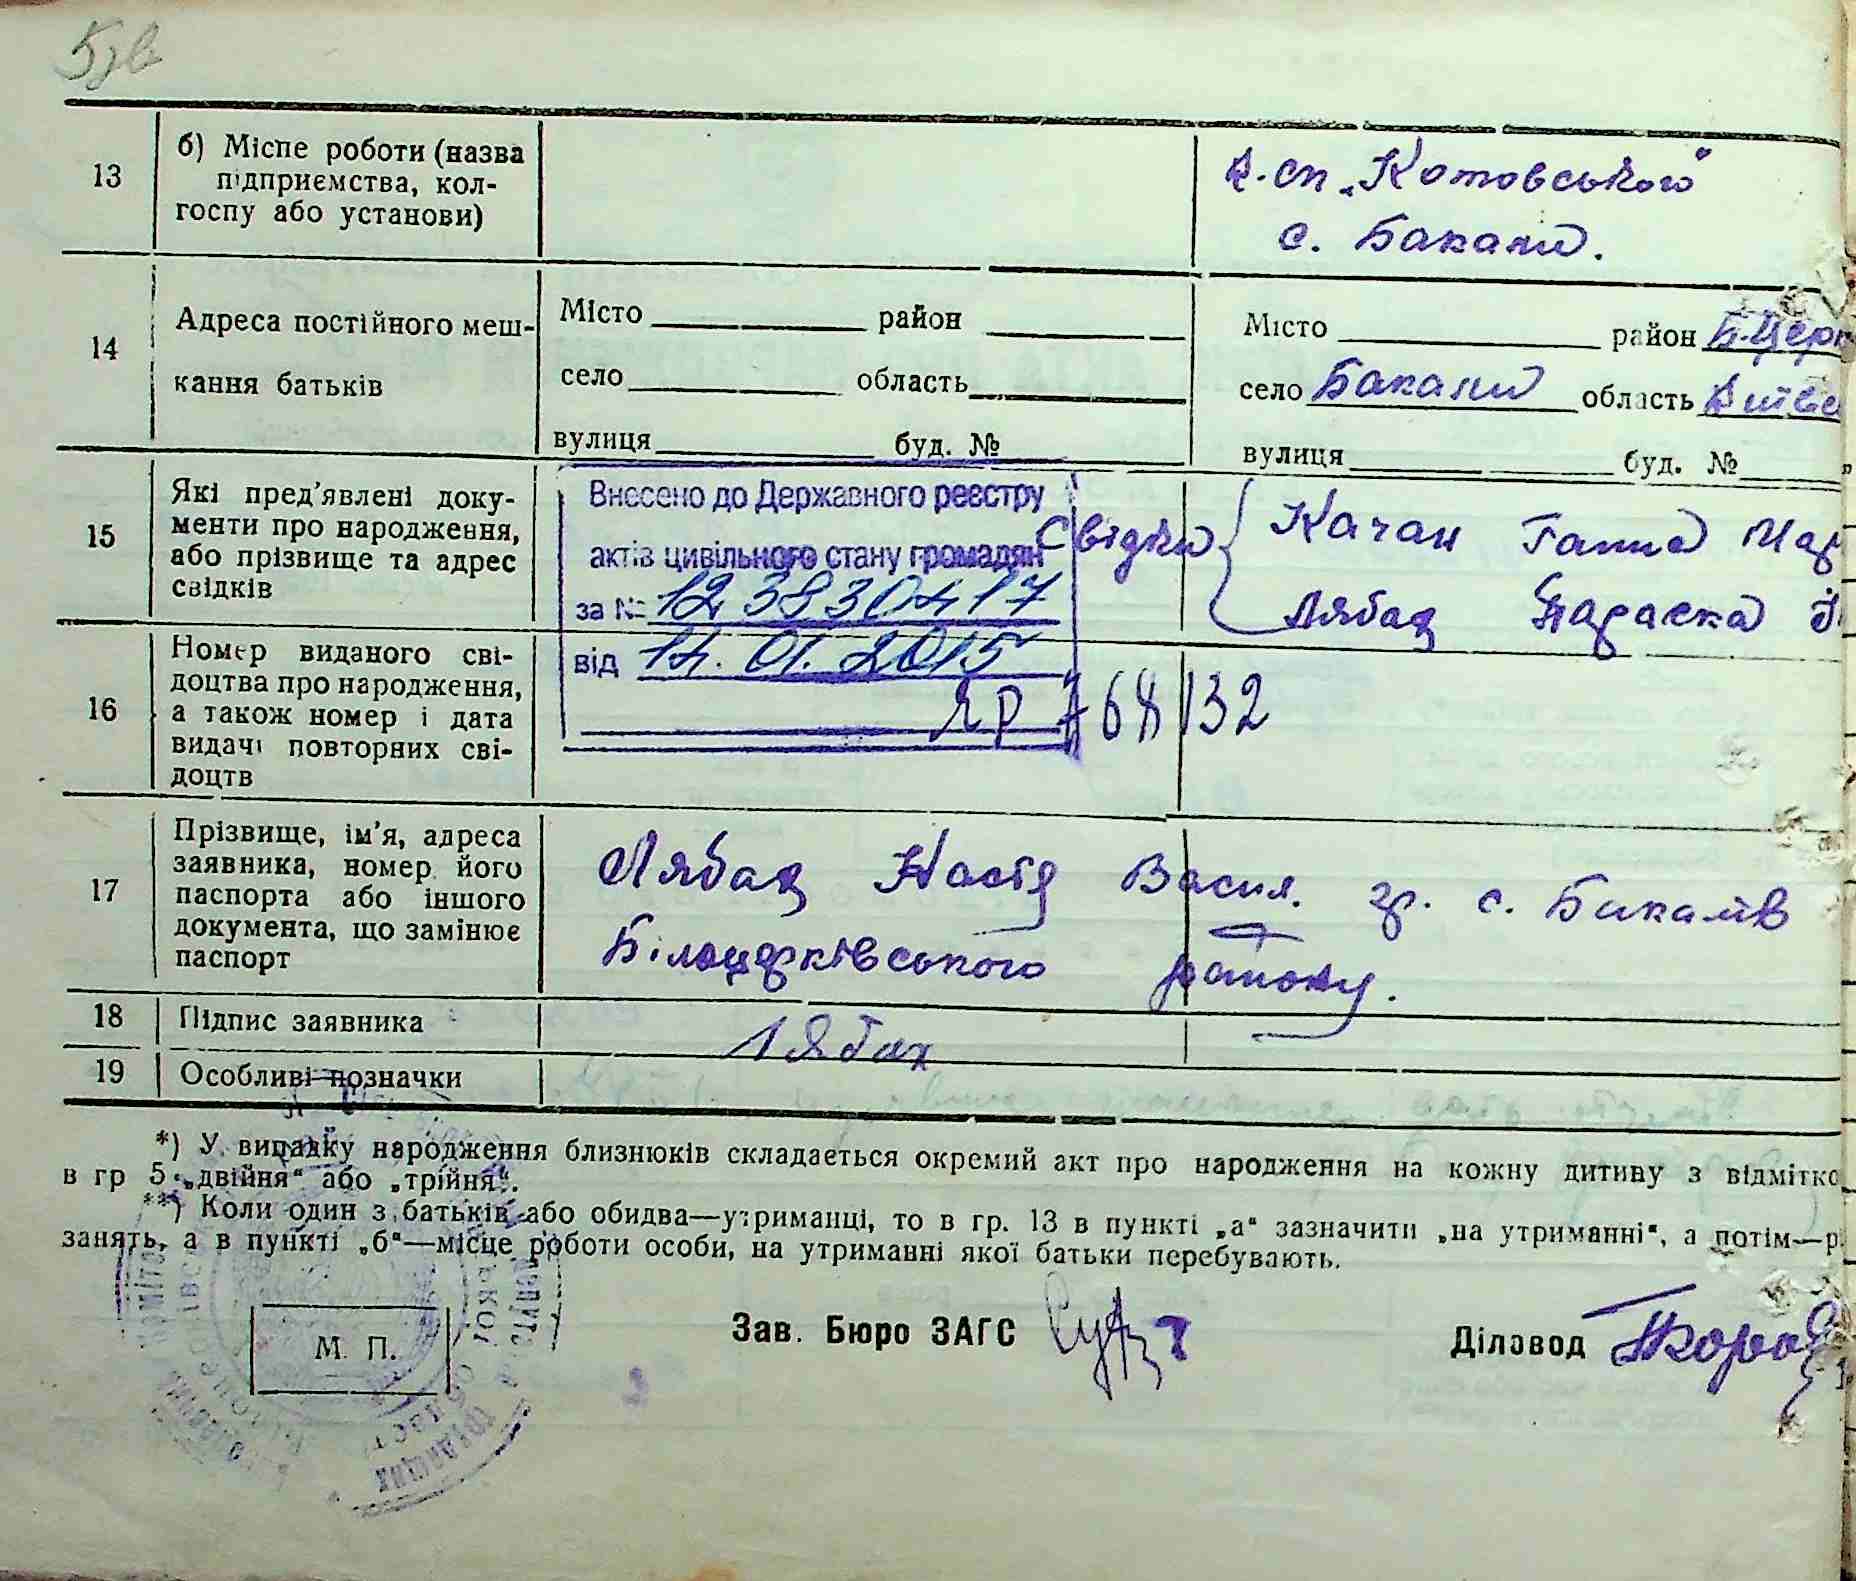 5зв
13 б) Місце роботи (назва підприємства, кол-
госпу або установи)
к-сп „Котовського"
с. Бакали.
14 Адреса постійного меш-
кання батьків
Місто район
село область
вулиця буд. №
Місто район Б-Церк
село Бакали область Київс
вулиця буд. №
15 Які пред'явлені доку-
менти про народження,
або прізвище та адрес
свідків
Внесено до Державного реєстру
актів цивільного стану громадян
за № 123830417
від 14.01.2015
Свідки Качан Ганна Мар
Лябах Параска
16 Номер виданого сві-
доцтва про народження,
а також номер і дата
видачі повторних сві-
доцтв
ЯР 132
17 Прізвище, ім'я, адреса
заявника, номер його
паспорта або іншого
документа, що замінює
паспорт
Лябах Настя Васил. гр. с. Бакалів
Білоцерківського району.
18 Підпис заявника
Лябах
19 Особливі позначки
*) У випадку народження близнюків складається окремий акт про народження на кожну дитину з відмітко
в гр 5 „двійня" або „трійня".
**) Коли один з батьків або обидва—утриманці, то в гр. 13 в пункті „а" зазначити „на утриманні", а потім—р
занять, а в пункті „б"—місце роботи особи, на утриманні якої батьки перебувають.
М. П.
Зав. Бюро ЗАГС
Діловод